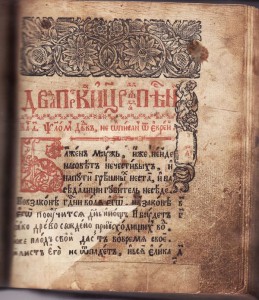 ѱалом дв҃дꙋ, не ѡписан ѿ еврей
Блажен мꙋжъ, иже не иде
на совѣтъ нечестивыхъ, и
на пꙋти грѣшныхъ не ста, и на
сѣдалищи гꙋбитель не сѣде.
Но в законѣ гд҇ни волѧ его, и в законѣ
его поꙋчитсѧ день и нощь. И бꙋдетъ
ꙗко древо саждено при исходищихъ во
иже плодъ свой дастъ во времѧ свое
и листъ его не ѿпадетъ, и всѧ елика